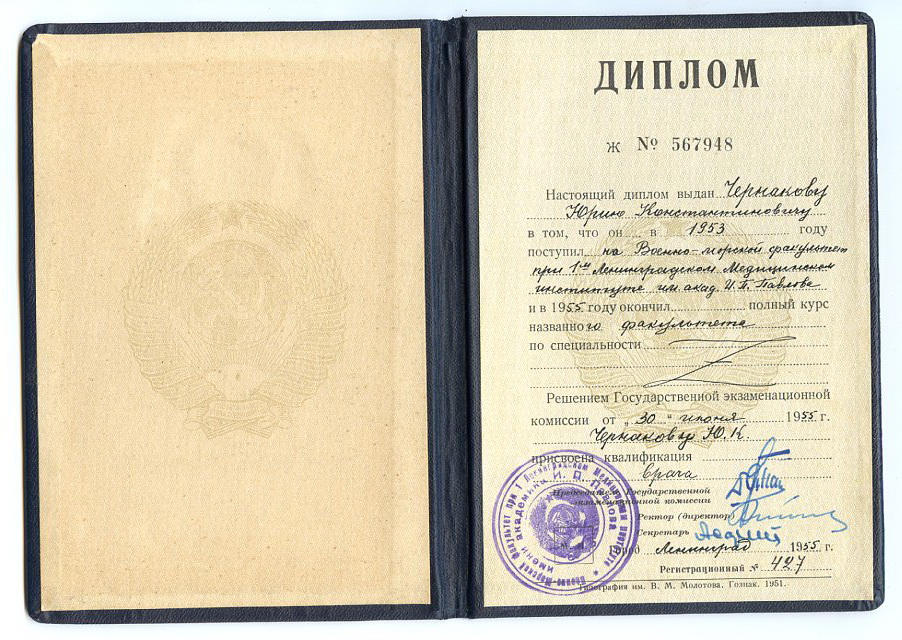 ДИПЛОМ
Ж № 567948
Настоящий диплом выдан Чернакову
Юрию Константиновичу
в том, что он в 1953 году
поступил на Военно-морской факультет
при 1ом Ленинградском Медицинском
институте им. акад. И.П. Павлова
и в 1955 году окончил полный курс
названного факультета
по специальности
Решением Государственной экзаменационной
комиссии от „30“ июня 1955 г.
Чернакову Ю.К.
присвоена квалификация
врача
Председатель Государственной
экзаменационной комиссии
Ректор (директор)
Секретарь
Город Ленинград 1955 г.
Регистрационный № 427
Типография им. В. М. Молотова. Гознак. 1951.
Военно-Морской факультет при 1 Ленинградском Медицинском институте
имени академика И. П. Павлова